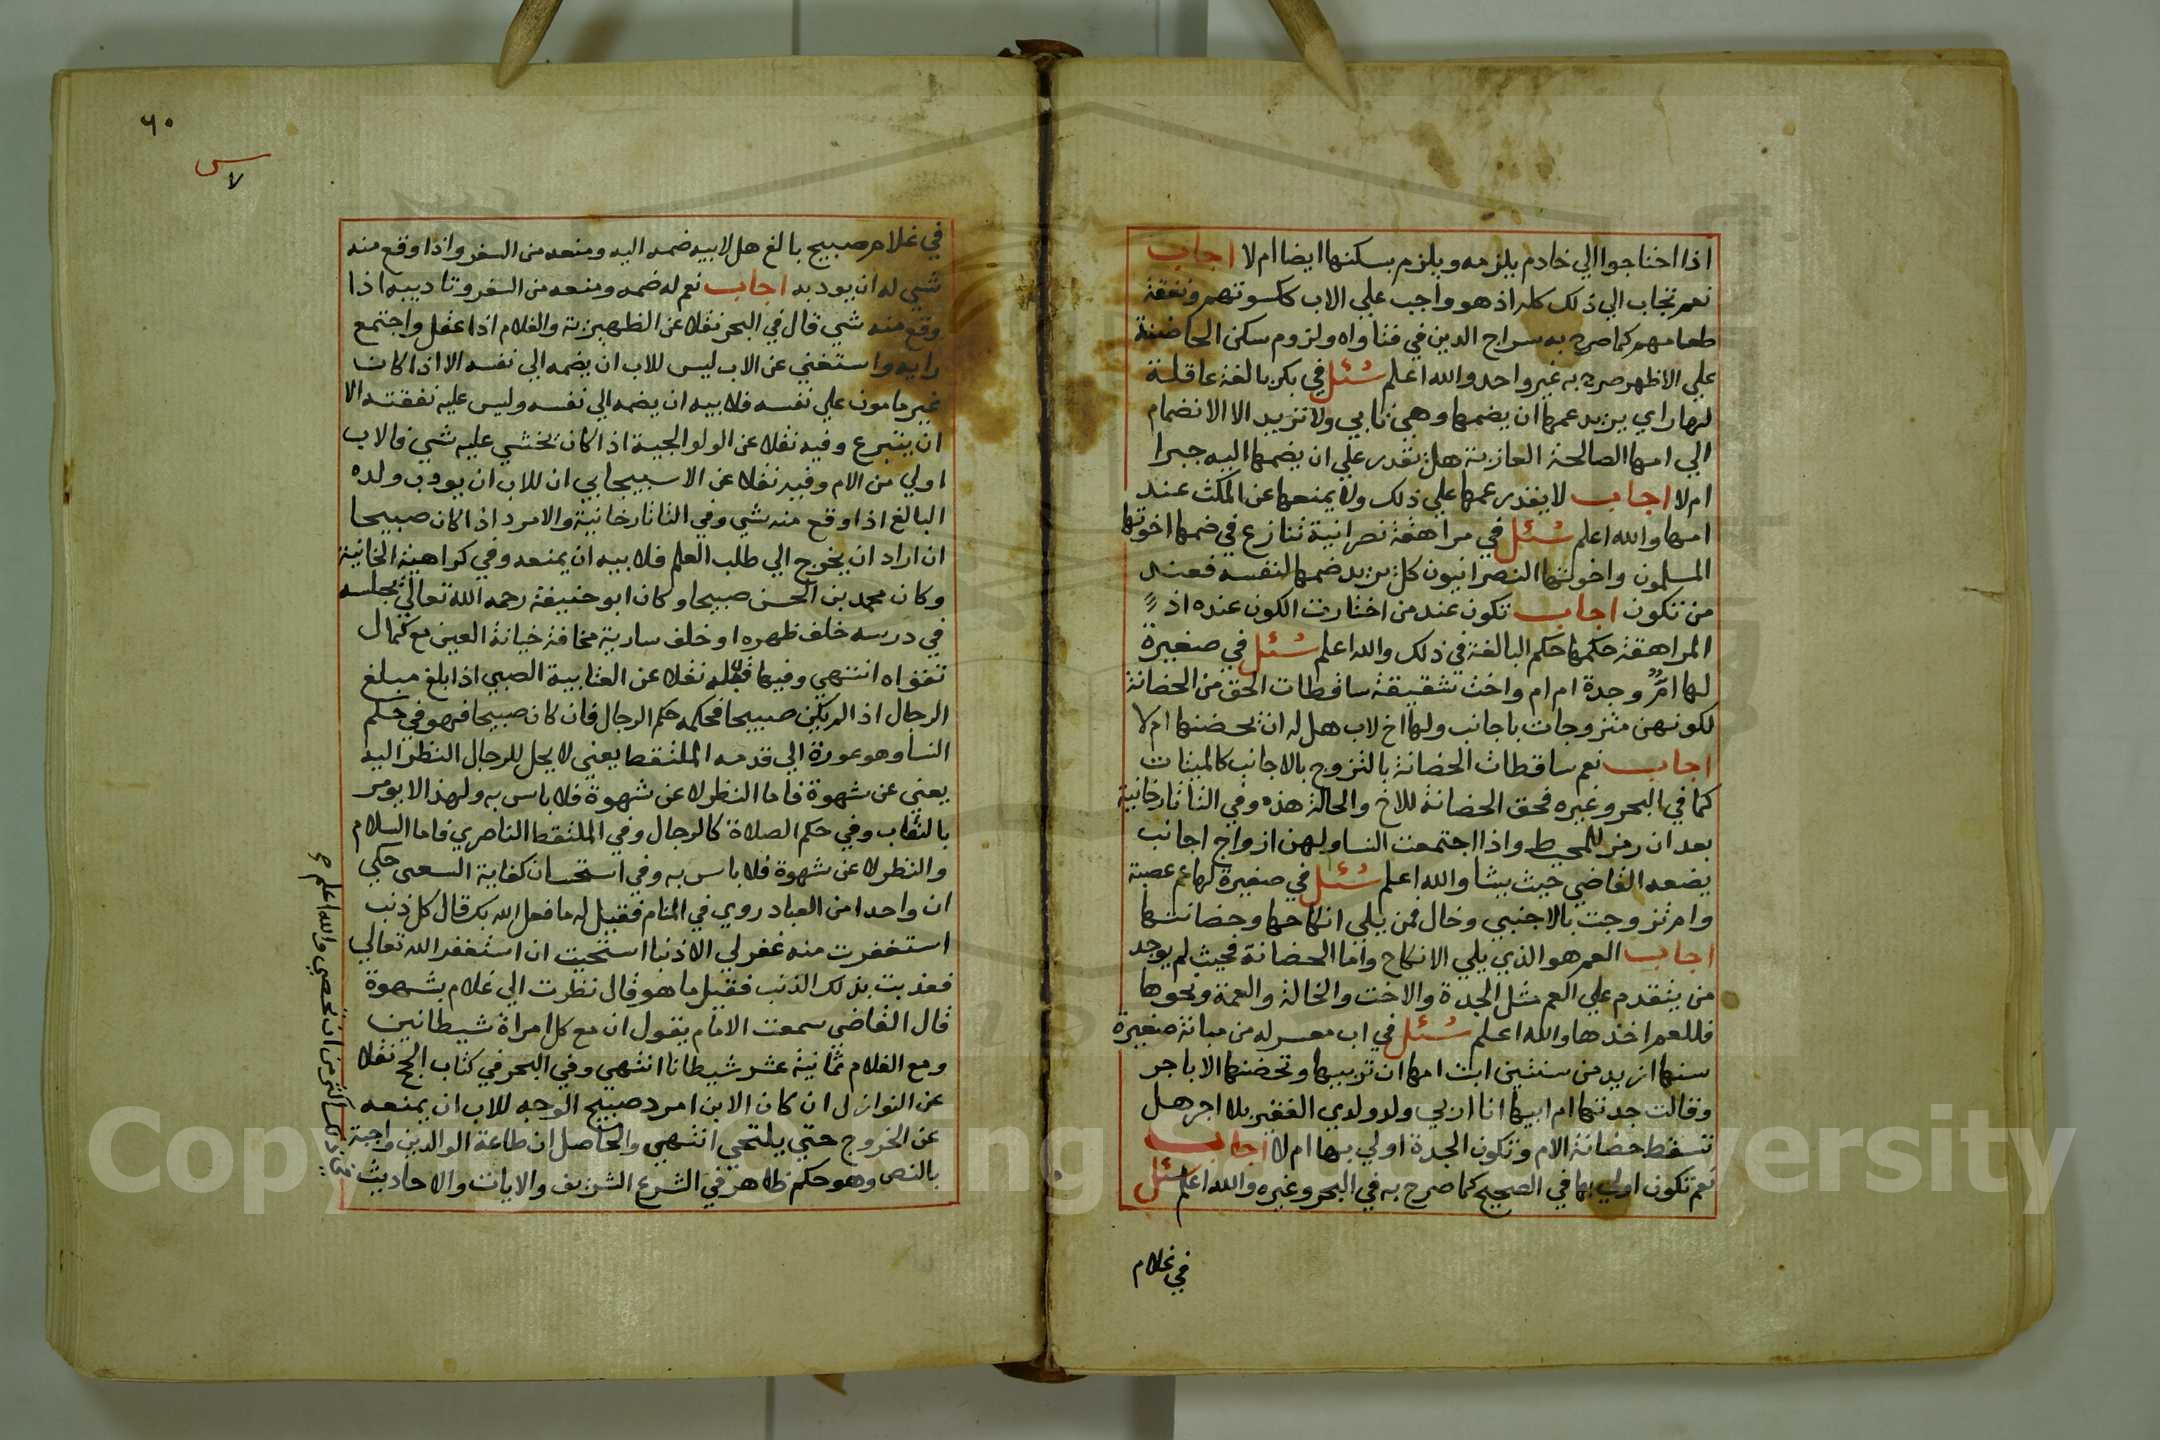 اذا احتاجوا الي خادم يلزمه ويلزم بسكنها ايضا ام لا اجاب
نعم تجاب الي ذلك كله اذ هو واجب علي الاب كاكسوتهم ونفقة
طعامهم كما صرح به سراج الدين في فتاواه ولزوم سكن الحاضنة
علي الاظهر صرح به غير واحد والله اعلم سئل في بكر بالغة عاقلة
لها راي يريد عمها ان يضمها وهي تابي ولا تريد الا الانضمام
الي امها الصالحة العازبة هل يقدر علي ان يضمها اليه جبرا
ام لا اجاب لا يقدر عمها علي ذلك ولا يمنعها عن المكث عند
امها والله اعلم سئل في مراهقة نصرانية تنازع في ضمها اخوتها
المسلمون واخوتها النصرانيون كل يريد ضمها لنفسه فعند
من تكون اجاب تكون عند من اختارت الكون عنده اذ
المراهقة حكمها حكم البالغة في ذلك والله اعلم سئل في صغيرة
لها ام وجدة ام ام واخت شقيقة ساقطات الحق من الحضانة
لكونهن متزوجات باجانب ولها اخ لاب هل له ان يحضنها ام لا
اجاب نعم ساقطات الحضانة بالتزوج بالاجانب كالميتات
كما في البحر وغيره فحق الحضانة للاخ والحالة هذه وفي التاتارخانية
بعد ان رمز للمحيط واذا اجتمعت النسا ولهن ازواج اجانب
يضعه القاضي حيث يشا والله اعلم سئل في صغيرة لها عم عصبة
وام تزوجت بالاجنبي وخال فمن يلي انكاحها وحضانتها
اجاب العم هو الذي يلي الانكاح واما الحضانة فحيث لم يوجد
من يتقدم علي العم مثل الجدة والاخت والخالة والعمة ونحوها
فللعم اخذها والله اعلم سئل في اب معسر له من مبانة صغيرة
سنها ازيد من سنتين ابت امها ان تربيها وتحضنها الا باجر
وقالت جدتها ام ابيها انا اربي ولد ولدي الفقير بلا اجر هل
تسقط حضانة الام وتكون الجدة اولي بها ام لا اجاب
نعم تكون اولي بها في الصحيح كما صرح به في البحر وغيره والله اعلم سئل
في غلام
٦٠
لا س
في غلام صبيح بالغ هل لابيه ضمه اليه ومنعه من السفر واذا وقع منه
شي له ان يودبه اجاب نعم له ضمه ومنعه من السفر وتاديبه اذا
وقع منه شي قال في البحر نقلا عن الظهيرية والغلام اذا عقل واجتمع
رايه واستغني عن الاب ليس للاب ان يضمه الي نفسه الا اذا كان
غير مامون علي نفسه فلابيه ان يضمه الي نفسه وليس عليه نفقته الا
ان يتبرع وفيه نقلا عن الولوالجية اذا كان يخشي عليه شي فالاب
اولي من الام وفيه نقلا عن الاسبيجابي ان للاب ان يودب ولده
البالغ اذا وقع منه شي وفي التاتارخانية والامرد اذا كان صبيحا
ان اراد ان يخرج الي طلب العلم فلابيه ان يمنعه وفي كراهية الخانية
وكان محمد بن الحسن صبيحا وكان ابو حنيفة رحمه الله تعالي يجلسه
في درسه خلف ظهره او خلف سارية مخافة خيانة العين مع كمال
تقواه انتهي وفيها قبله نقلا عن العتابية الصبي اذا بلغ مبلغ
الرجال اذا لم يكن صبيحا فحكمه حكم الرجال فان كان صبيحا فهو في حكم
النسا وهو عورة الي قدمه الملتقط يعني لا يحل للرجال النظر اليه
يعني عن شهوة فاما النظر لا عن شهوة فلا باس به ولهذا لا يومر
بالنقاب وفي حكم الصلاة كالرجال وفي الملتقط الناصري فاما السلام
والنظر لا عن شهوة فلا باس به وفي استحسان كفاية السعبي حكي
ان واحدا من العباد روي في المنام فقيل له ما فعل الله بك قال كل ذنب
استغفرت منه غفر لي الا ذنبا استحيت ان استغفر الله تعالي
فعذبت بذلك الذنب فقيل ما هو قال نظرت الي غلام بشهوة
قال القاضي سمعت الامام يقول ان مع كل امراة شيطانين
ومع الغلام ثمانية عشر شيطانا انتهي وفي البحر في كتاب الحج نقلا
عن النوازل ان كان الابن امرد صبيح الوجه للاب ان يمنعه
عن الخروج حتي يلتحي انتهي والحاصل ان طاعة الوالدين واجبة
بالنص وهو حكم ظاهر في الشرع الشريف والايات والاحاديث
اكثر من ان تحصي والله اعلم